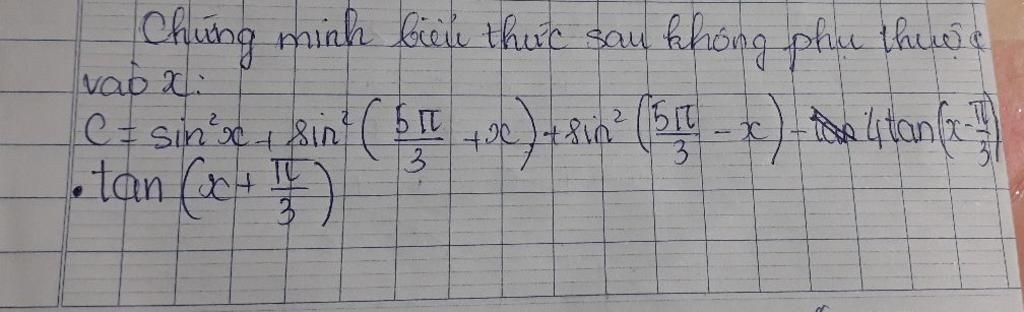 Chứng minh biểu thức sau không phụ thuộc
vào x:
C = sin²x + sin²(5π/3 + x) + sin²(5π/3 - x) - 4tan(x - π/3)
. tan(x + π/3)